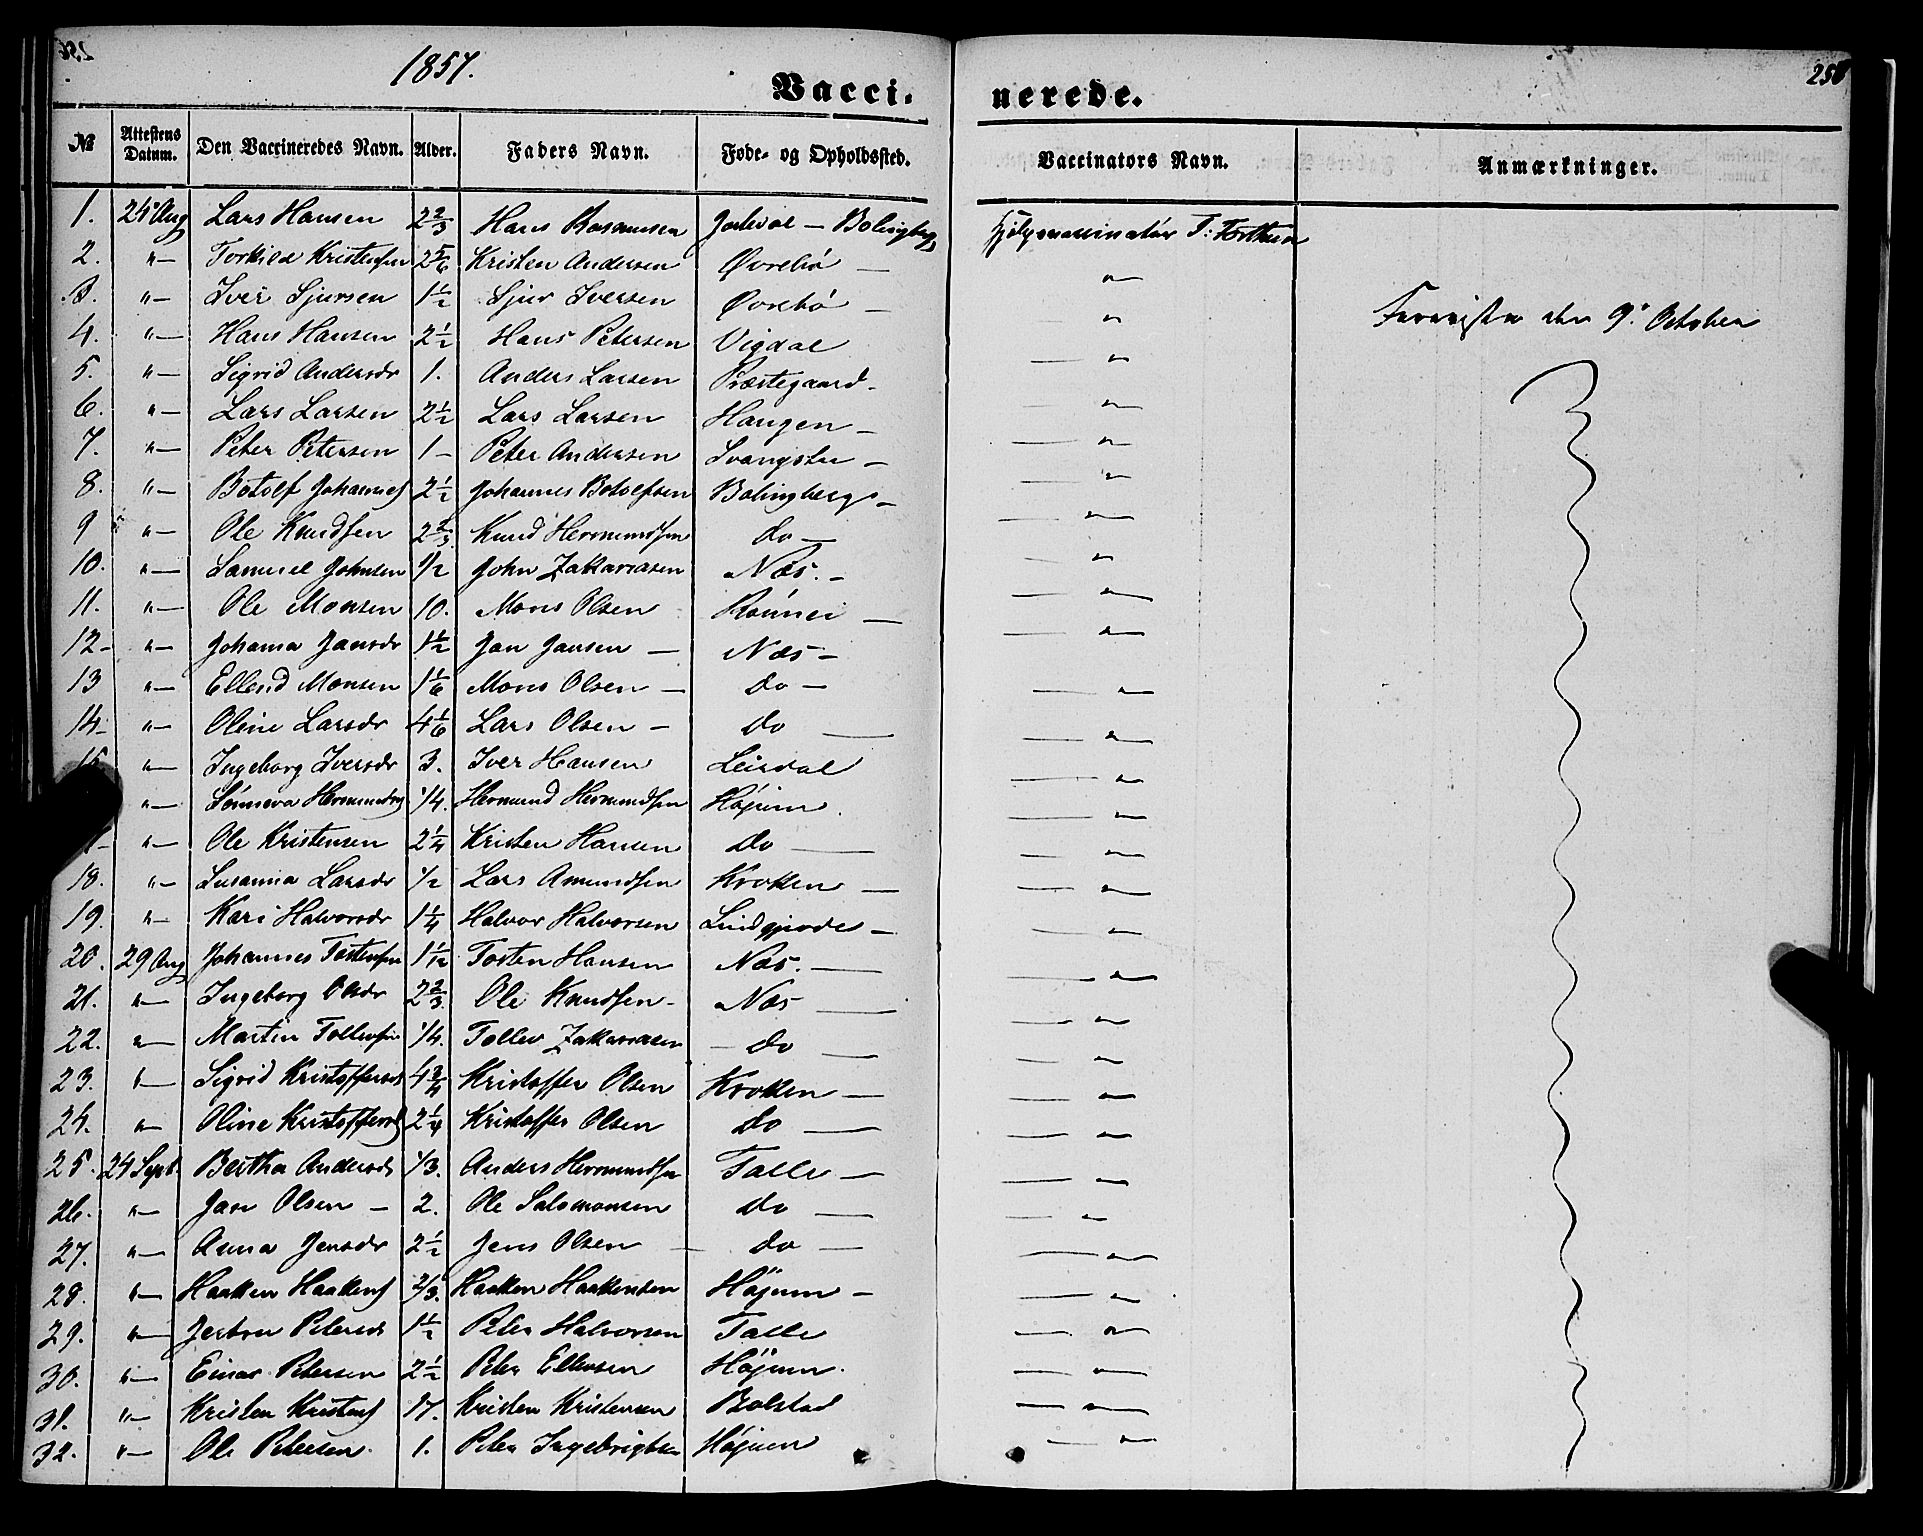 1857.
258
Vacci- nerede.
№ Attestens Datum. Den Vaccineredes Navn. Alder. Faders Navn. Føde- og Opholdssted. Vaccinators Navn. Anmærkninger.
1. 24 Aug Lars Hansen 2 2/3 Hans Rasmussen
2. "— Torkild Kristensen 2 5/6 Kristen Andersen Øvrebø —
3. "— Iver Sjursen 1 1/2 Sjur Iversen Øvrebø — "
den 9. October
4. "— Hans Hansen 2 1/2 Hans Petersen Vigdal — "
5. "— Sigrid Andersdr 1. Anders Larsen Præstegaard — "
6. "— Lars Larsen 2 1/2 Lars Larsen Haugen — — "
7. "— Peter Petersen 1 — Peter Andersen — "
8. "— Botolf Johannes 2 1/2 Johannes Botolfsen Bolingberg — — "
9 "— Ole Knudsen 2 2/3 Knud Hermundsen do — — "
10. "— Samuel Johnsen 1/2 John Zakariasen Næs. — — "
11. "— Ole Monsen 10. Mons Olsen Rønnei — — "
12 — "— Johanna Jansdr 1 1/2 Jan Jansen — Næs — — "
13 "— Ellend Monsen 1 1/6 Mons Olsen — do — — "
14 — "— Oline Larsdr 4 1/6 Lars Olsen — do — — "
15 "— Ingeborg Iversdr 3. Iver Hansen Leirdal — "
"— Sønneva 1/4. Hermund Hermundsen Højum. — "
"— Ole Kristensen 2 1/4 Kristen Hansen do — — "
18. "— Susanna Larsdr 1/2 Lars Amundsen Kroken — — "
19. "— Kari Halvorsdr 1 1/4 Halvor Halvorsen — "
20. 29 Aug Johannes Tostensen 1 1/12 Tosten Hansen Næs. — — "
21. "— Ingeborg Olsdr 2 2/3. Ole Knudsen — Næs — — "
22. "— Martin Tollevsen 1/4. Tollev Zakariasen — do — — "
23. "— Sigrid Kristoffersdr 4 3/4 Kristoffer Olsen Kroken — — "
24. "— Oline Kristoffersd 2 1/4 Kristoffer Olsen do — — "
25. 24 Sept. Beritha Andersdr 1/3. Anders Hermundsen Talle — — "
26. "— Jan Olsen — 2. Ole Salomonsen do — — "
27. "— Anna Jensdr 2 1/2 Jens Olsen — do — — "
28. "— Haakon Haakens 2/3. Haaken Haakensen Højum — — "
29. "— Petersdr 1 1/2 Peter Halvorsen Talle — "
30. "— Einar Petersen 2 1/2 Peter Ellensen Højum. — "
31. "— Kristen Kristens 17. Kristen Kristensen Bolstad — "
32. "— Ole Petersen. 1. Peter Ingebrigtsen Højum — "